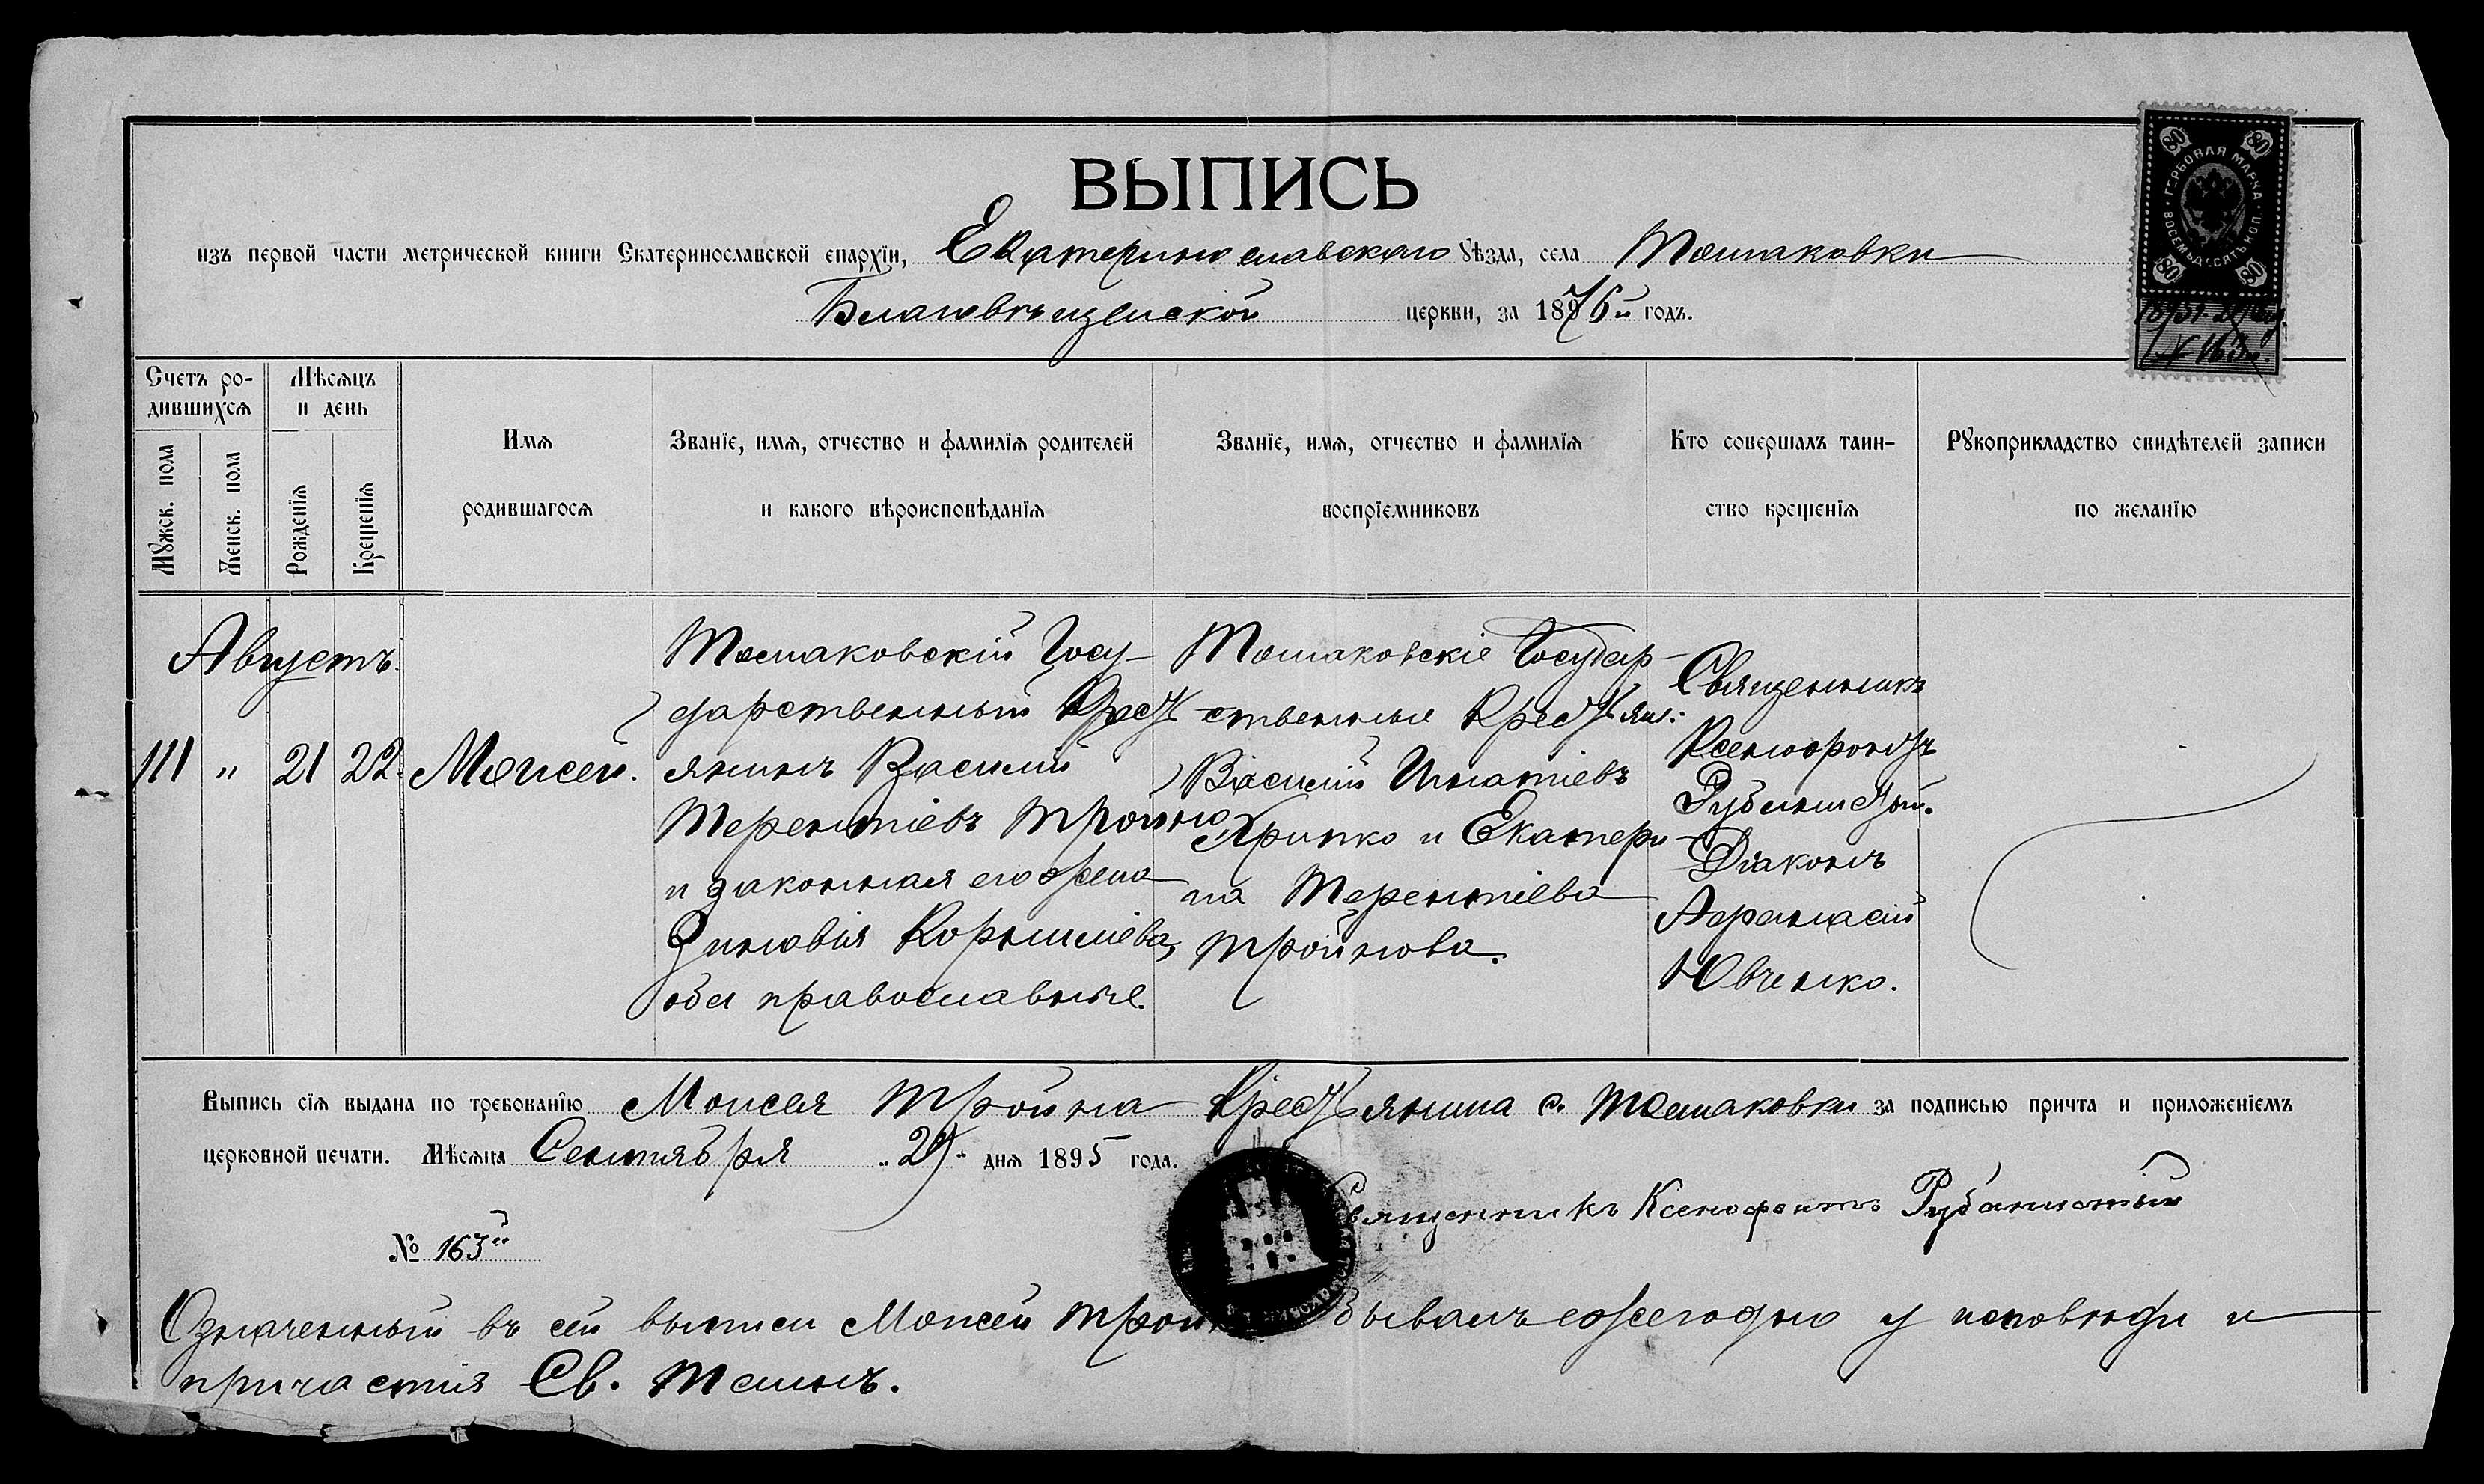 ВЫПИСЬ
изъ первой части метрической книги Екатеринославской епархіи, Екатеринославскаго уѣзда, села Томаковки
Благовѣщенской церкви, за 1876й годъ.
ГЕРБОВАЯ МАРКА
ВОСЕМЬДЕСЯТЪ КОП.
80 80
80 80
Счетъ ро-
дившихся
Мѣсяцъ
и день
Мужск. пола
Женск. пола
Рожденія
Крещенія
Имя
родившагося
Званіе, имя, отчество и фамилія родителей
и какого вѣроисповѣданія
Званіе, имя, отчество и фамилія
воспріемниковъ
Кто совершалъ таин-
ство крещенія
Рукоприкладство свидѣтелей записи
по желанію
Августъ.
111 " 21 22. Моисей.
Томаковскій Госу-
дарственный Крест
янинъ Василій
Терентіевъ Тройно
и законная его жена
Зиновія Корниліева,
оба православные.
Томаковскіе Государ-
ственные Крестьян:
Василій Игнатіевъ
Хрипко и Екатери-
на Терентіева
Тройнова.
Священникъ
Ксенофонтъ
Рубанистый.
Діаконъ
Афанасій
Ювченко.
Выпись сія выдана по требованію Моисея Тройна Крестьянина с. Томаковки за подписью причта и приложеніемъ
церковной печати. Мѣсяца Сентября дня 1895 года.
Священникъ Ксенофонтъ Рубанистый
№ 163й
Означенный въ сей выписи Моисей Тройно бывалъ ежегодно у исповѣди и
причастія Св. Таинъ.